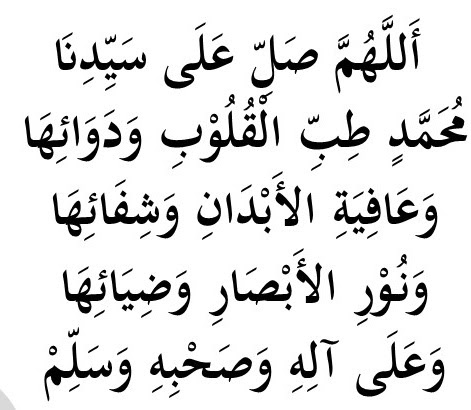 أَللَّهُمَّ صَلِّ عَلَى سَيِّدِنَا
مُحَمَّدٍ طِبِّ الْقُلُوْبِ وَدَوَائِهَا
وَعَافِيَةِ الأَبْدَانِ وَشِفَائِهَا
وَنُوْرِ الأَبْصَارِ وَضِيَائِهَا
وَعَلَى آلِهِ وَصَحْبِهِ وَسَلِّمْ